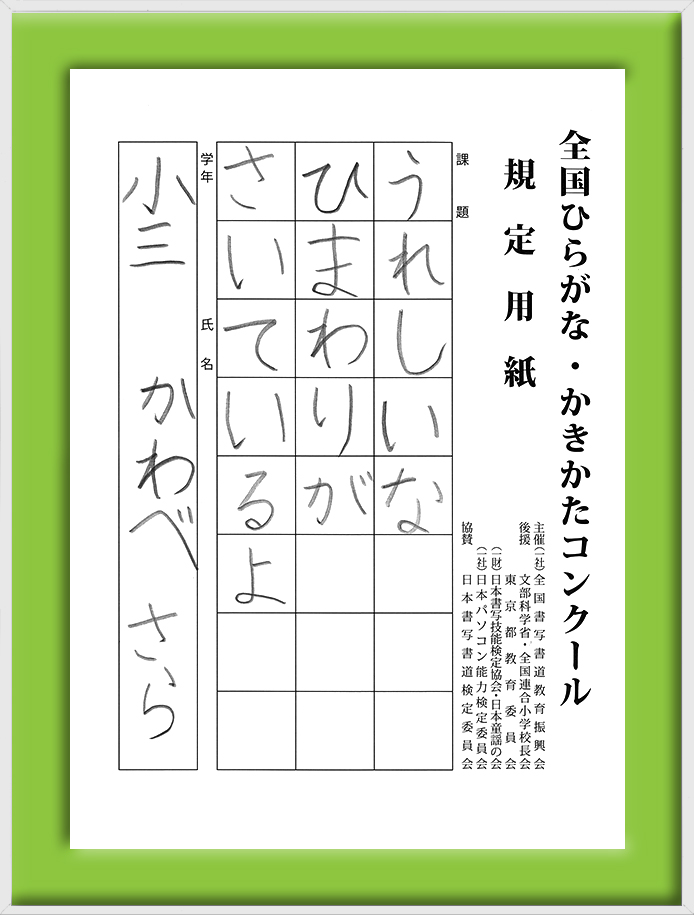 全国ひらがな・かきかたコンクール
規定用紙
主催(一社)全国書写書道教育振興会
後援 文部科学省・全国連合小学校長会
東京都教育委員会
(一財)日本書写技能検定協会・日本童謡の会
(一社)日本パソコン能力検定委員会
協賛 日本書写書道検定委員会
課題
うれしいな
ひまわりが
さいているよ
学年 氏名
小三 かわべ さら